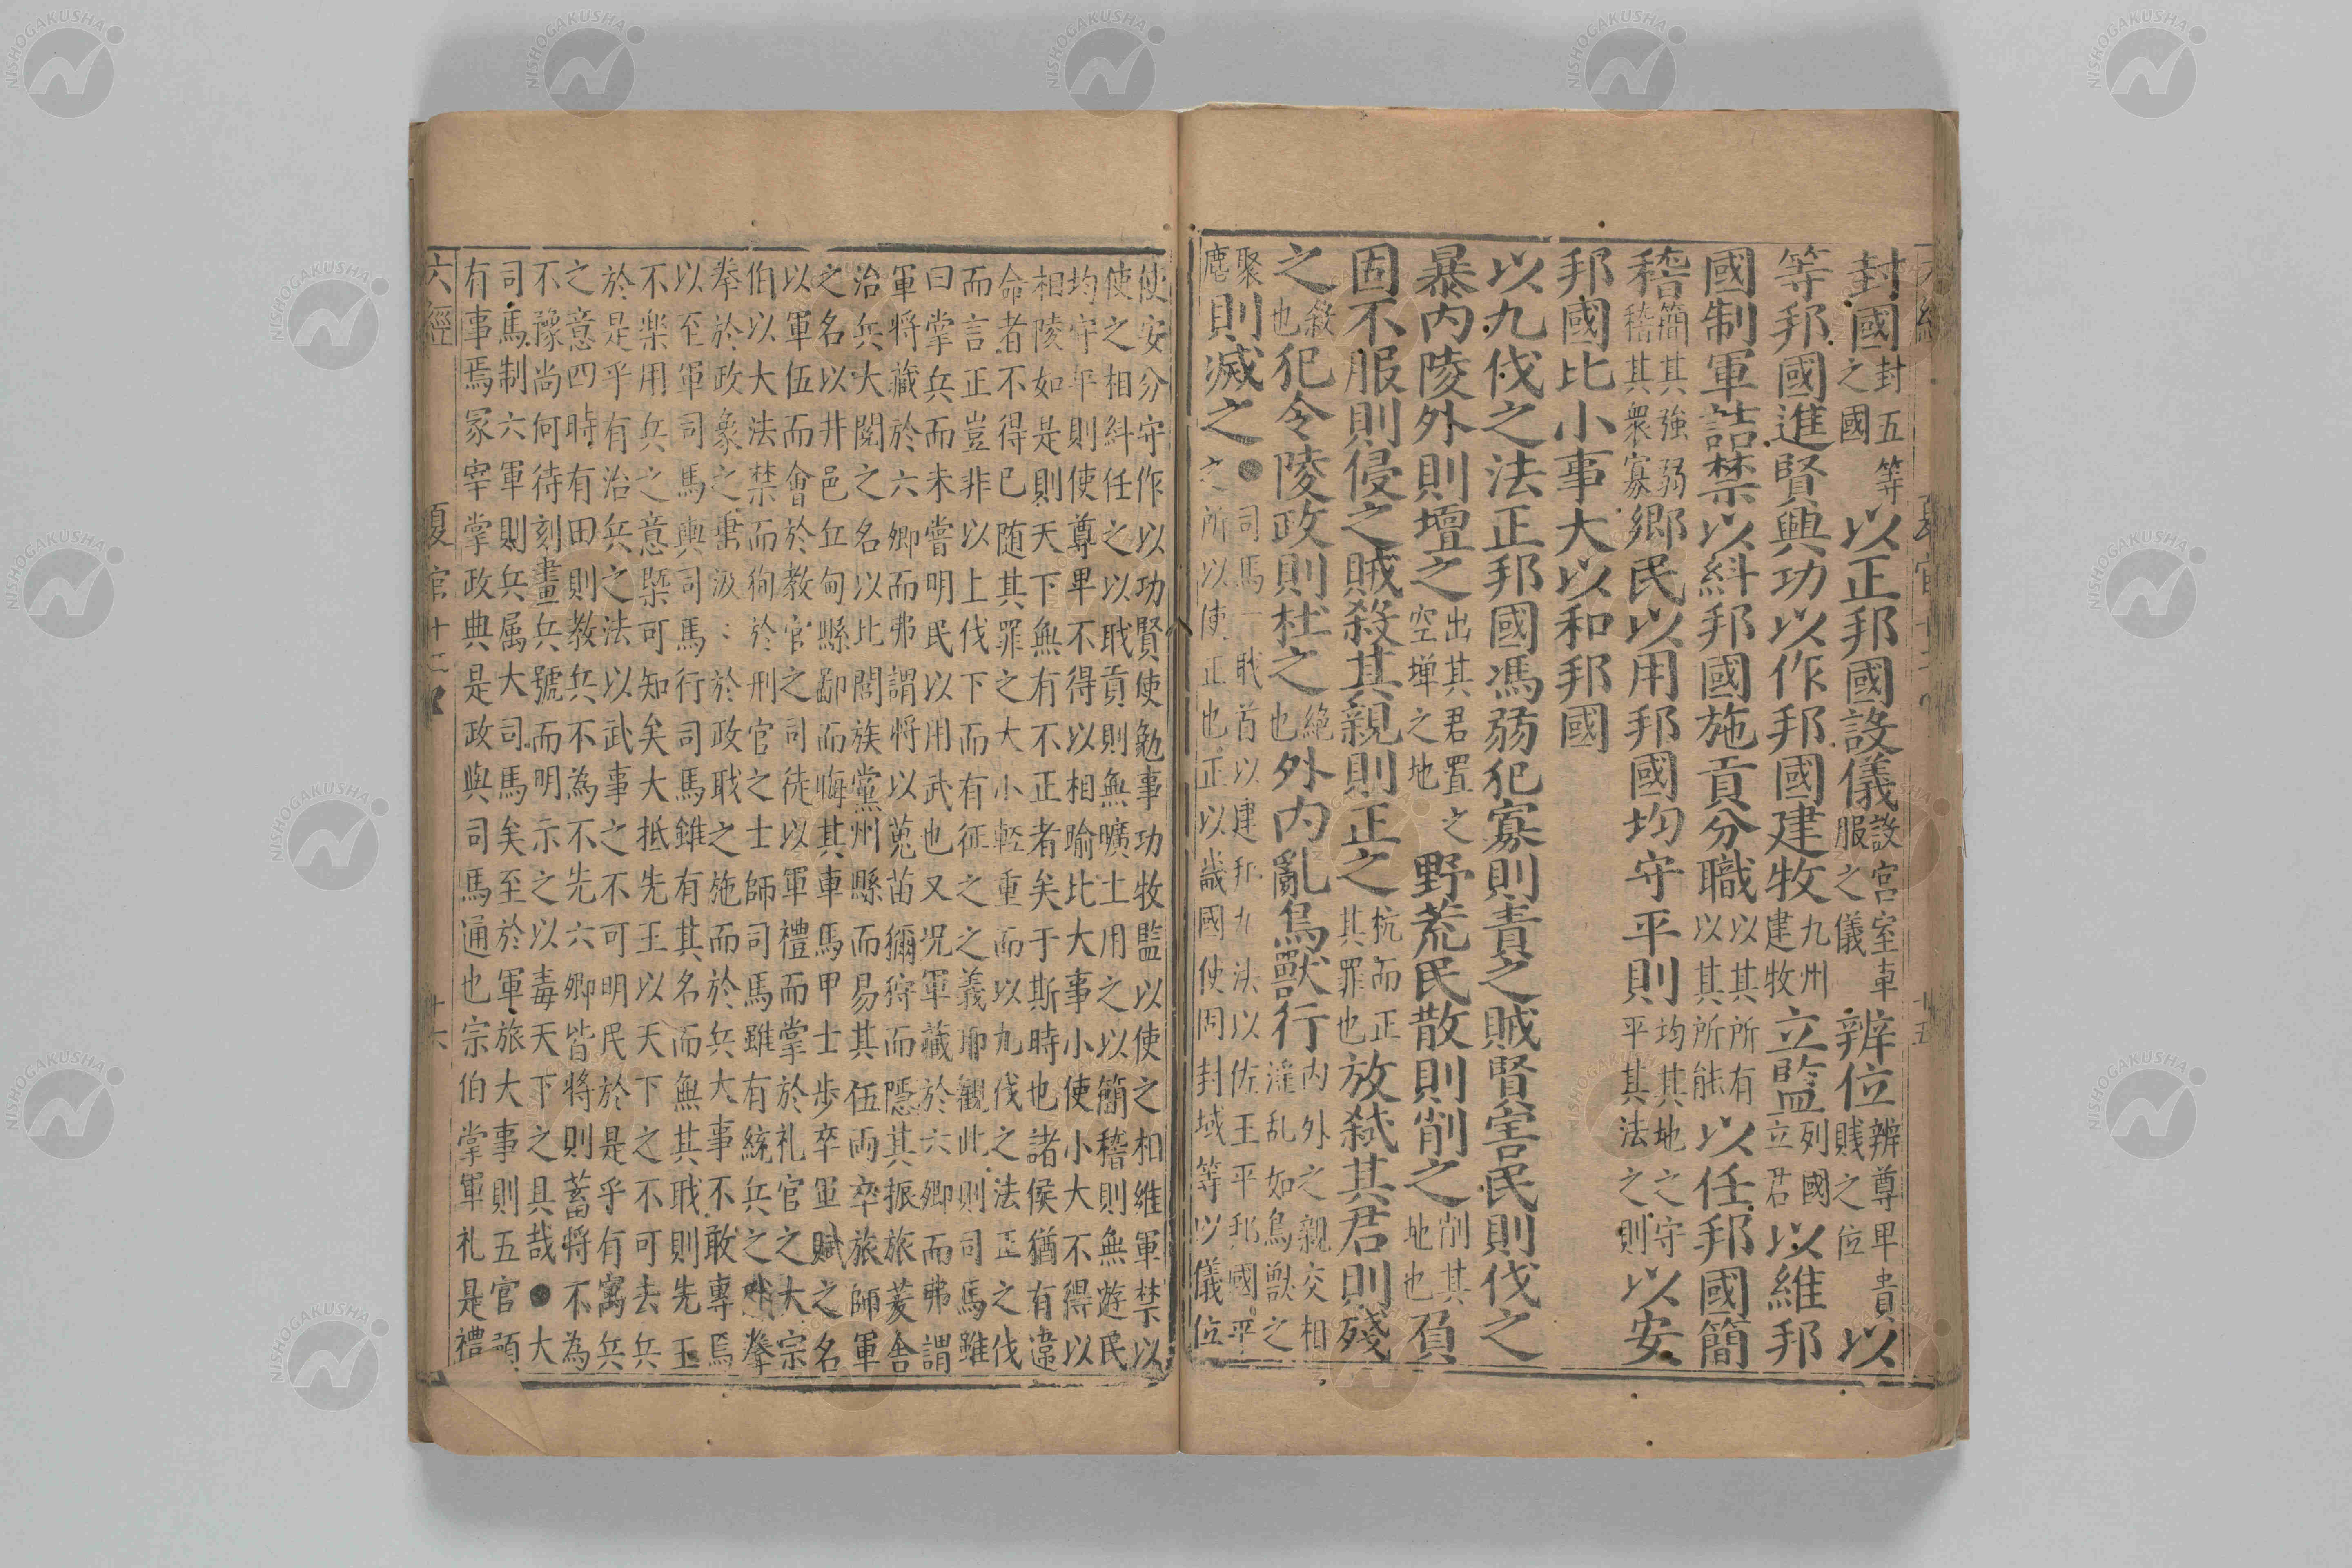 封國封五等之國以正邦國設儀設宮室車服之儀辨位辨尊卑貴賤之位以
等邦國進賢興功以作邦國建牧九州建牧立監列國立君以維邦
國制軍詰禁以糾邦國施貢分職以其所有以其所能以任邦國簡
稽簡其強弱稽其衆寡鄉民以用邦國均守平則均其地之守平其法之則以安
邦國比小事大以和邦國
以九伐之法正邦國馮弱犯寡則責之賊賢害民則伐之
暴内陵外則壇之出其君置之空墠之地野荒民散則削之削其地也負
固不服則侵之賊殺其親則正之抗而正其罪也放弑其君則殘
之殺也犯令陵政則杜之絶也外内亂鳥獸行内外之親交相淫乱如鳥獸之
聚麀則滅之●司馬一職首以建邦九法以佐王平邦國平之所以使正也正以畿國使周封域等以儀位
使安分守作以功賢使勉事功牧監以使之相維軍禁以
使之相糾任之以職貢則無曠土用之以簡稽則無遊民
均守平則使尊卑不得以相踰比大事小使小大不得以
相陵如是則天下無有不正者矣于斯時也諸侯猶有違
命者不得已随其罪之大小輕重而以九伐之法正之伐
而言正豈非以上伐下而有征之之義耶觀此則司馬雖
曰掌兵而未嘗明民以用武也又况軍藏於六卿而弗謂
軍将藏於六卿而弗謂将以蒐苗獮狩而隱其振旅茇舍
治兵大閱之名以比閭族黨州縣而易其伍両卒旅師軍
之名以井邑丘甸縣鄙而晦其車馬甲士歩卒軍賦之名
以軍伍而會於教官之司徒以軍禮而掌於礼官之大宗
伯以大法禁而徇於刑官之士師司馬雖有統兵之拳
拳於政象之垂汲〻於政職之施而於兵大事不敢專焉
以至軍司馬輿司馬行司馬雖有其名而無其職則先王
不楽用兵之意槩可知矣大抵先王以天下之不可去兵
於是乎有治兵之法以武事之不可明民於是乎有寓兵
之意四時有田則教兵不為不先六卿皆将則蓄将不為
不豫尚何待刻畫兵號而明示之以毒天下之具哉●大
司馬制六軍則兵属大司馬矣至於軍旅大事則五官預
有事焉冢宰掌政典是政與司馬通也宗伯掌軍礼是禮
六經 夏官十二 十六
NISHOGAKUSHA